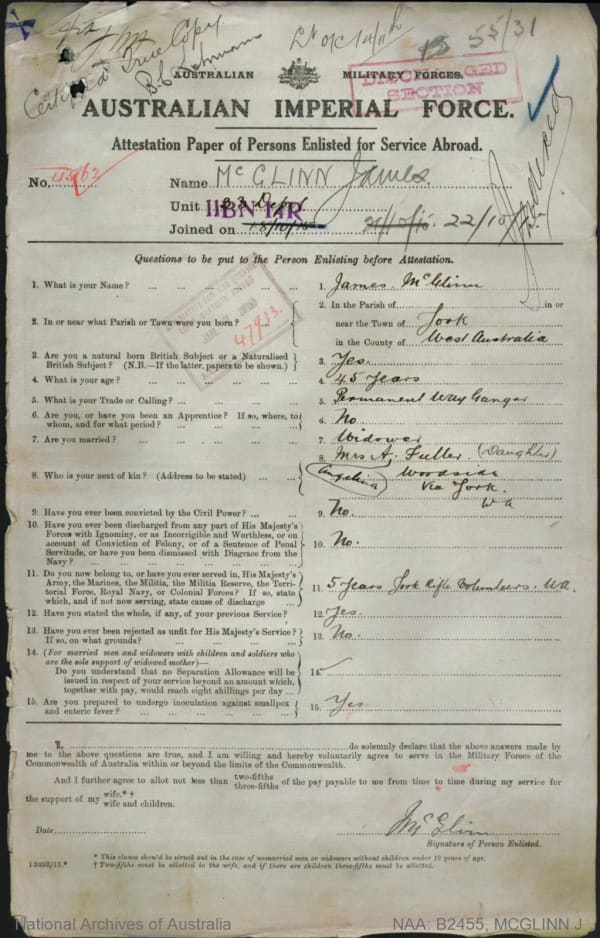 Certified True Copy
13 55/31
AUSTRALIAN MILITARY FORCES.
DISCHARGED
SECTION
AUSTRALIAN IMPERIAL FORCE.
Attestation Paper of Persons Enlisted for Service Abroad.
No. 4562 Name McGLINN James
Unit 11BN 14R
Joined on 18/10/15 21/10/15 22/10/15
Questions to be put to the Person Enlisting before Attestation.
1. What is your Name? ... 1. James McGlinn
2. In or near what Parish or Town were you born? ... 2. In the Parish of in or
near the Town of York
in the County of West Australia
47933
3. Are you a natural born British Subject or a Naturalised
British Subject? (N.B.—If the latter, papers to be shown.) 3. Yes.
4. What is your age? ... 4. 45 Years
5. What is your Trade or Calling? ... 5. Permanent Way Ganger
6. Are you, or have you been an Apprentice? If so, where, to
whom, and for what period? ... 6. No.
7. Are you married? ... 7. Widower
8. Who is your next of kin? (Address to be stated) ... 8. Mrs A. Fuller (Daughter)
Angelina Woodside
Via York.
WA
9. Have you ever been convicted by the Civil Power? ... 9. No.
10. Have you ever been discharged from any part of His Majesty's
Forces with Ignominy, or as Incorrigible and Worthless, or on
account of Conviction of Felony, or of a Sentence of Penal
Servitude, or have you been dismissed with Disgrace from the
Navy? ... 10. No.
11. Do you now belong to, or have you ever served in, His Majesty's
Army, the Marines, the Militia, the Militia Reserve, the Terri-
torial Force, Royal Navy, or Colonial Forces? If so, state
which, and if not now serving, state cause of discharge 11. 5 Years York Rifle Volunteers. WA.
12. Have you stated the whole, if any, of your previous Service? 12. Yes.
13. Have you ever been rejected as unfit for His Majesty's Service?
If so, on what grounds? ... 13. No.
14. (For married men and widowers with children and soldiers who
are the sole support of widowed mother)—
Do you understand that no Separation Allowance will be
issued in respect of your service beyond an amount which,
together with pay, would reach eight shillings per day ... 14.
15. Are you prepared to undergo inoculation against smallpox
and enteric fever? ... 15. Yes
I, do solemnly declare that the above answers made by
me to the above questions are true, and I am willing and hereby voluntarily agree to serve in the Military Forces of the
Commonwealth of Australia within or beyond the limits of the Commonwealth.
And I further agree to allot not less than two-fifths three-fifths of the pay payable to me from time to time during my service for
the support of my wife.*† wife and children.
J McGlinn
Date, Signature of Person Enlisted.
* This clause should be struck out in the case of unmarried men or widowers without children under 18 years of age.
† Two-fifths must be allotted to the wife, and if there are children three-fifths must be allotted.
National Archives of Australia NAA: B2455, MCGLINN J